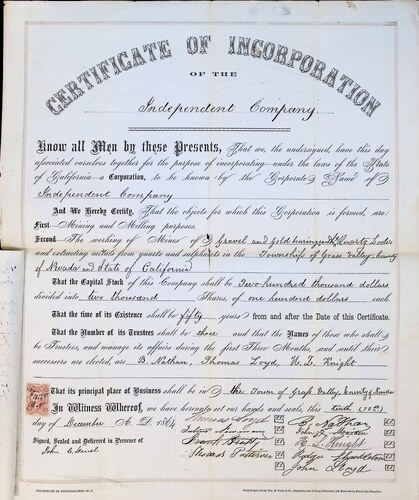 CERTIFICATE OF INCORPORATION
OF THE
Independent Company
Know all Men by these Presents, That we, the undersigned, have this day
associated ourselves together for the purpose of incorporating under the laws of the State
of California a Corporation, to be known by the Corporate Name of
Independent Company
And We Hereby Certify, That the objects for which this Corporation is formed, are:
First—Mining and Milling purposes.
Second—The working of Mines of Gravel and Gold bearing Quartz Lodes
and extracting metals from quartz and sulphurets in the Township of Grass Valley, County
of Nevada and State of California
That the Capital Stock of this Company shall be Two hundred thousand dollars
divided into two thousand Shares of one hundred dollars each.
That the time of its Existence shall be fifty years from and after the Date of this Certificate.
That the Number of its Trustees shall be three and that the Names of those who shall
be Trustees, and manage its affairs during the first Three Months, and until their
successors are elected, are B. Nathan, Thomas Loyd, W. L. Knight
That its principal place of Business shall be in the Town of Grass Valley, County of Nevada
In Witness Whereof, we have hereunto set our hands and seals, this tenth (10th)
day of December A. D. 1864
Thomas Loyd B. Nathan
Signed, Sealed and Delivered in Presence of
Knight
John
John Loyd